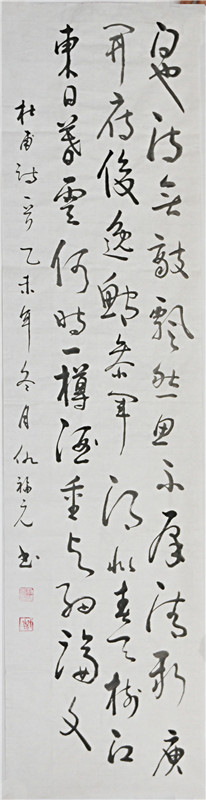 白也詩無敵飄然思不群清新庾
開府俊逸鮑參軍渭北春天樹江
東日暮雲何時一樽酒重与細論文
杜甫詩一首乙未年冬月仇福元书